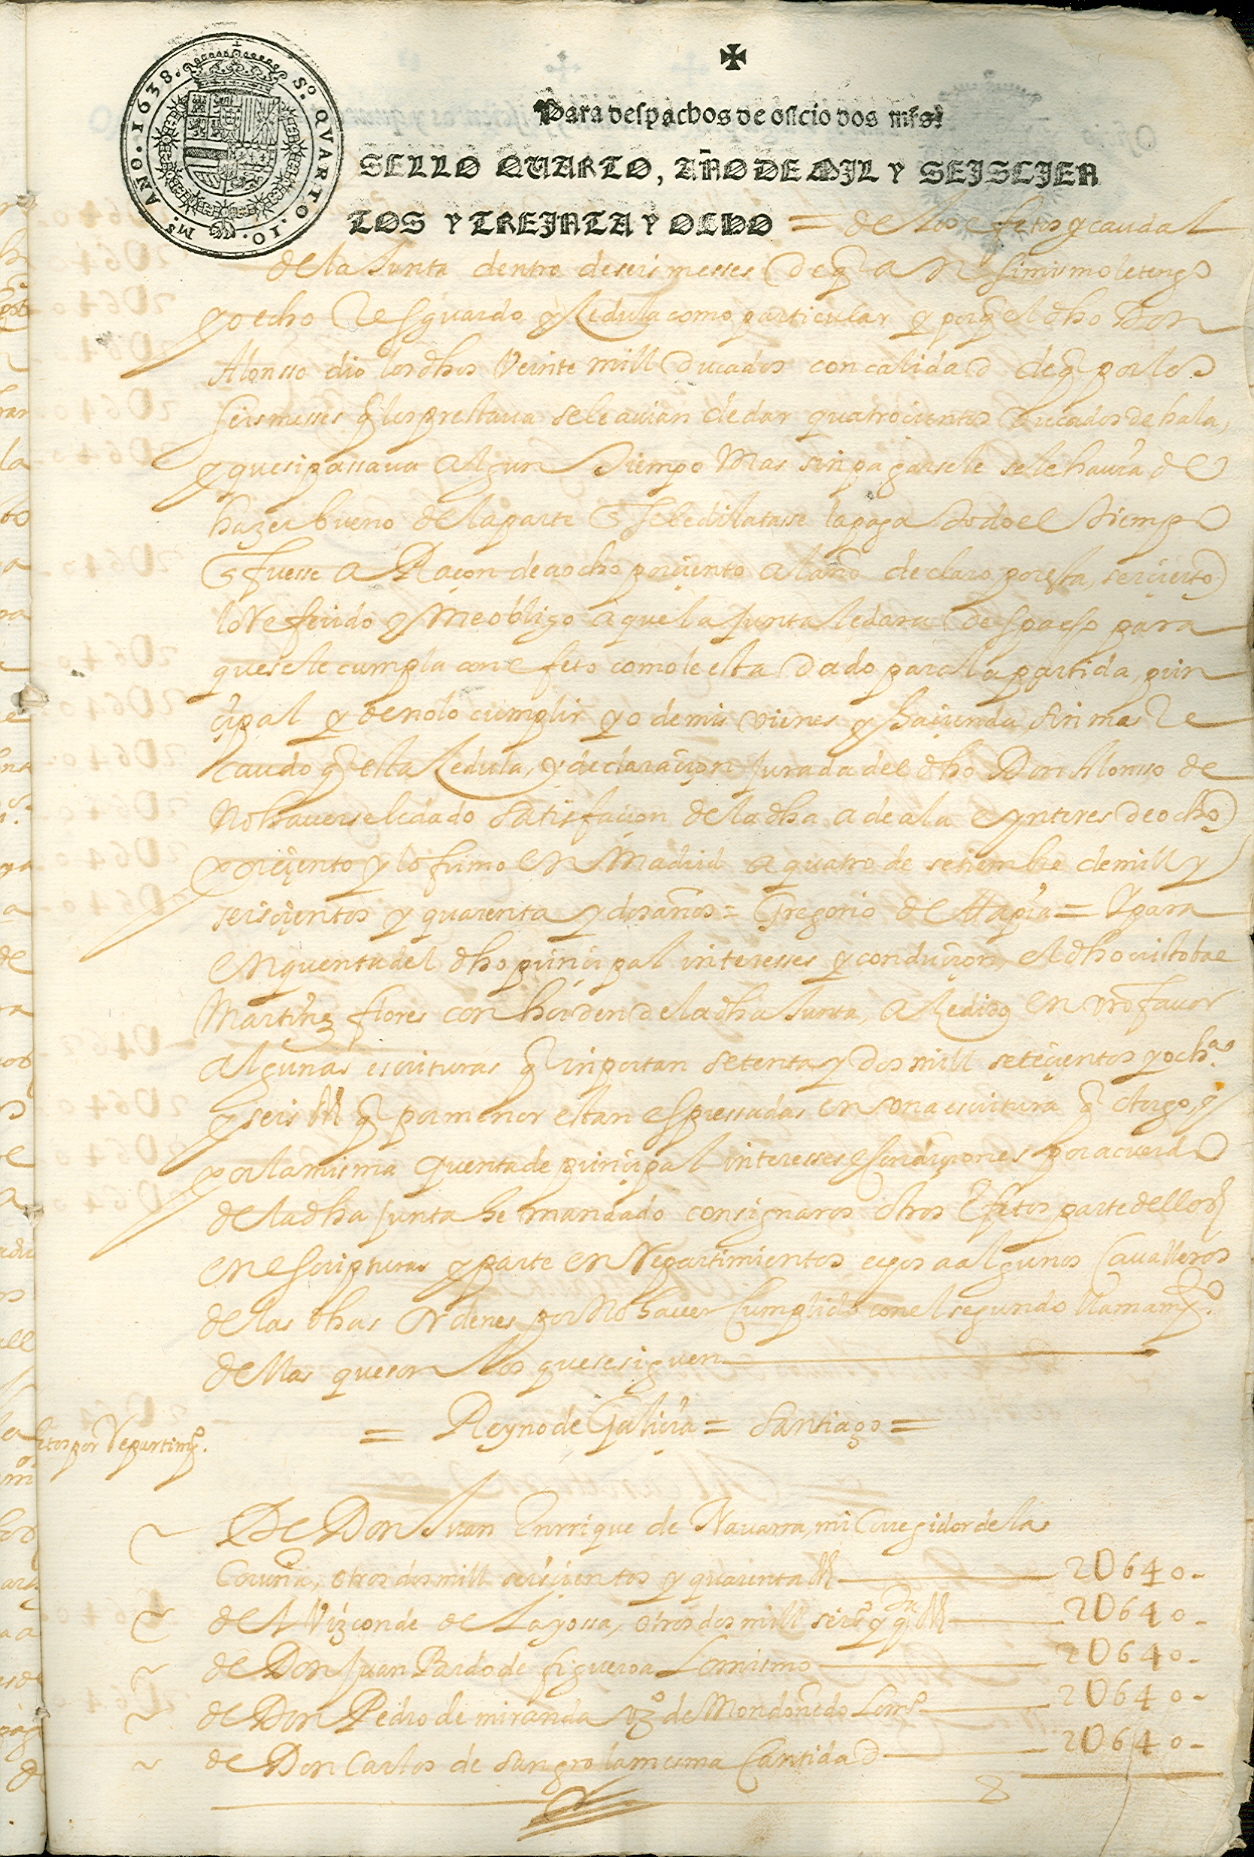 ✠
Para despachos de oficio dos mrs.
SELLO QUARTO, AÑO DE MIL Y SEISCIEN
TOS Y TREINTA Y OCHO = de los fetos y caudal
Sº. QVARTO. 10. Ms. ANO. 1638.
de la Junta dentro de seis messes (de q a Vm simismo le tengo
yo echo Resguardo y Zedula como particular y porq el dho Don
Alonsso dio los dhos Veinte mill Ducados con calidad de q por los
seis messes q los prestaua se le auian de dar quatrocientos Ducados de hala,
y que si passaua algun Tiempo Mas sin pagarsele se le haura de
hazer bueno de la parte q se le dilatasse la paga todo el Tiempo
q fuesse a Raçon de a ocho por çiento al año declaro por esta, ser çierto
lo Referido y Me obligo a que la Junta le dara Despacho para
que se le cumpla con efeto como le esta Dado para la partida prin
çipal y de no lo cumplir yo de mis vienes y haçienda sin mas Re
caudo q esta Zedula, y declaraçion Jurada del dho Don Alonsso de
No hauersele dado satisfaçion de la dha adeala e ynteres de ocho
por çiento y lo firmo en Madrid a quatro de setiembre de mill y
seisçientos y quarenta y dos años = Gregorio de Tapia = Y para
en quenta del dho prinçipal interesses y conduçion el dho cristobal
Martinez flores con horden de la dha Junta, a Zedido en vro fauor
algunas escrituras q inportan setenta y dos mill seteçientos y ochta
y seis Rs q por menor estan espressadas en vna escritura q otorgo, y
por la misma quenta de prinçipal interesses y Conduçiones por acuerdo
de la dha Junta he mandado consignaros otros Efetos parte dellos
en escripturas y parte en Repartimientos echos a algunos Caualleros
de las dhas Ordenes por No hauer Cumplido con el segundo llamamto.
dellas que son los que se siguen
= Reyno de Galiçia = Santiago =
fetos por Repartimto.
De Don Juan Enrrique de Nauarra, mi Corregidor de la
Coruña, otros dos mill seisçientos y quarenta Rs 2U640-
del Vizconde de Layossa, otros dos mill seisº y qta Rs 2U640-
de Don Juan Pardo de figueroa Lo mismo 2U640-
de Don Pedro de miranda vzº de Mondoñedo Lo mº 2U640-
de Don Carlos de sangro la mesma Cantidad 2U640-